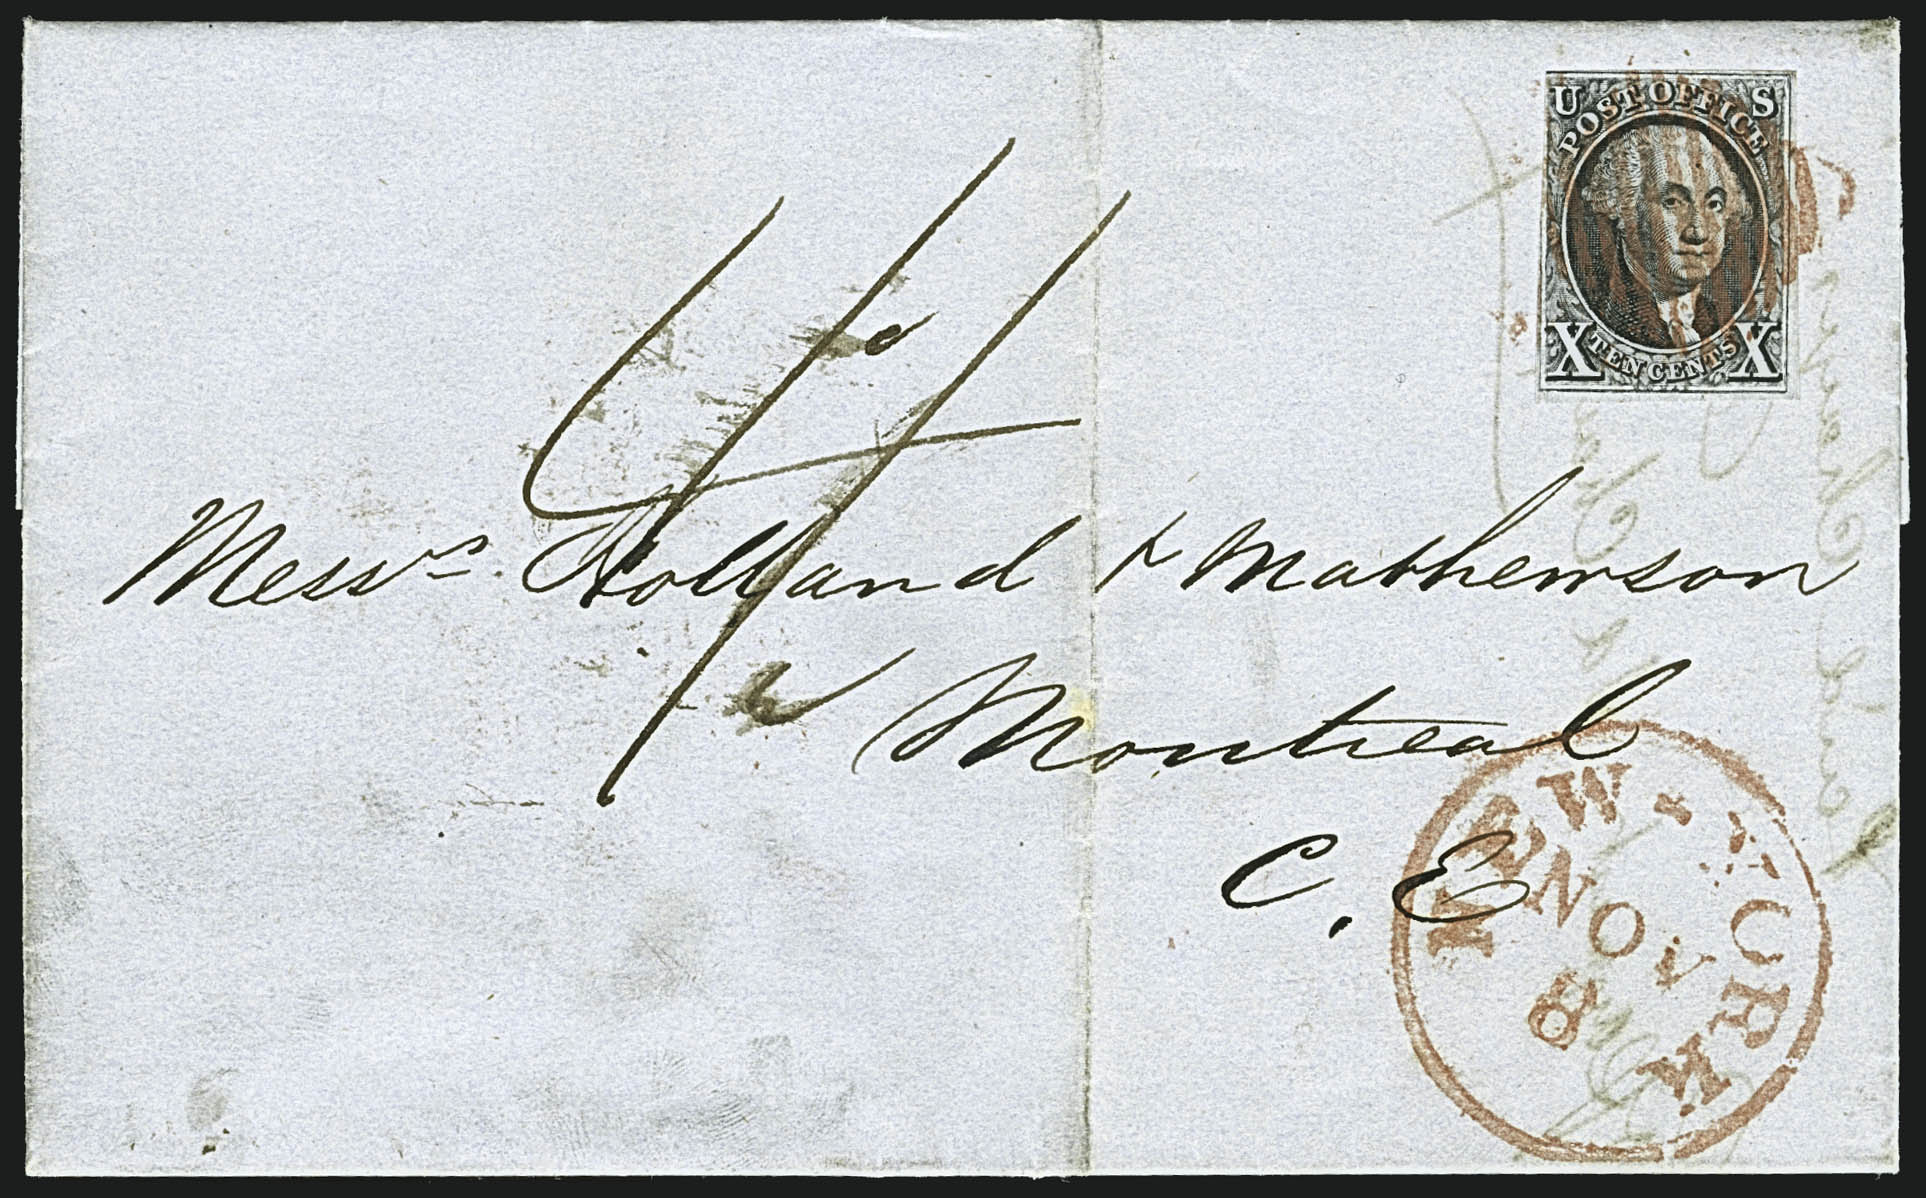 U S
POST OFFICE
X TEN CENTS X
4/
Messrs. Holland & Mathewson
Montreal
C. E
NEW-YORK
NOV
8